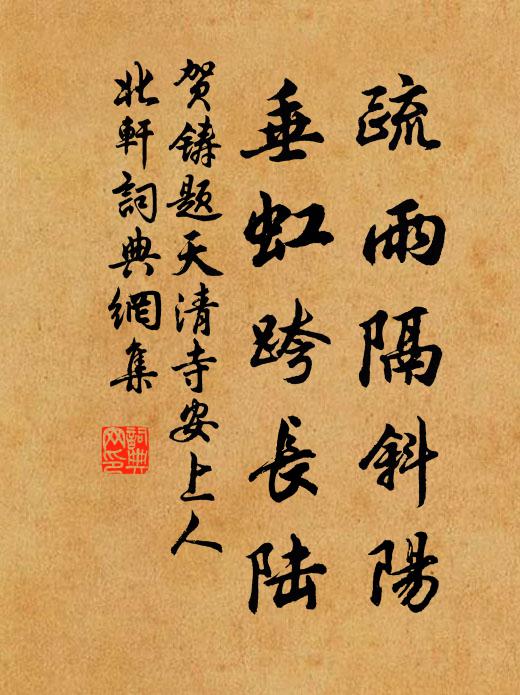 疏雨隔斜陽
垂虹跨長陆
贺鑄题天清寺安上人
北軒詞典網集
詞典網印